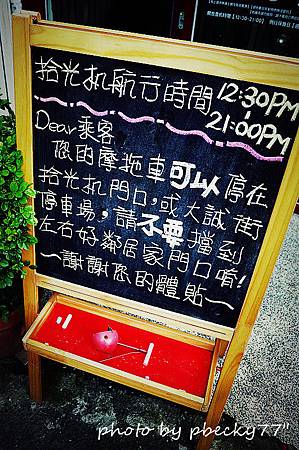 拾光机航行時間 12:30PM
~
21:00PM
Dear乘客
您的摩拖車可以停在
拾光机門口,或大誠街
停車場,請不要擋到
左右好鄰居家門口唷!
~謝謝您的體貼~
photo by pbecky77"